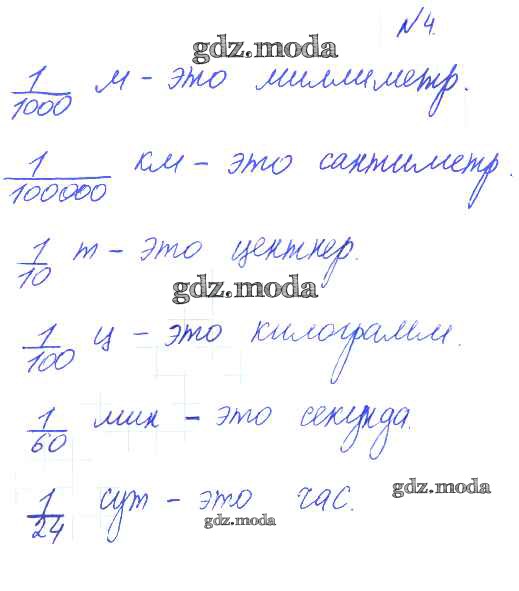 №4.
gdz.moda
1/1000 м - это миллиметр.
1/100000 км - это сантиметр.
1/10 т - это центнер.
gdz.moda
1/100 ц - это килограмм.
1/60 мин - это секунда.
1/24 сут - это час.
gdz.moda
gdz.moda